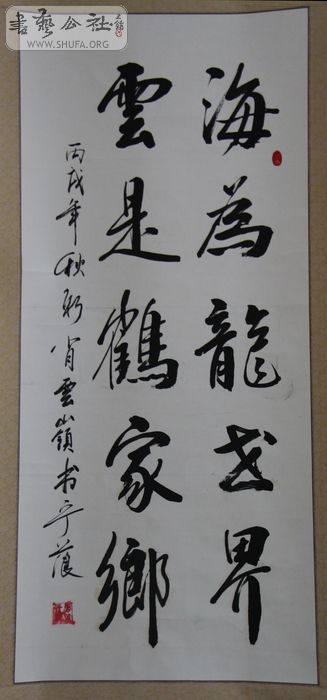 書藝公社
WWW.SHUFA.ORG
海為龍世界
雲是鶴家鄉
丙戌年秋月肖雲嶺书于